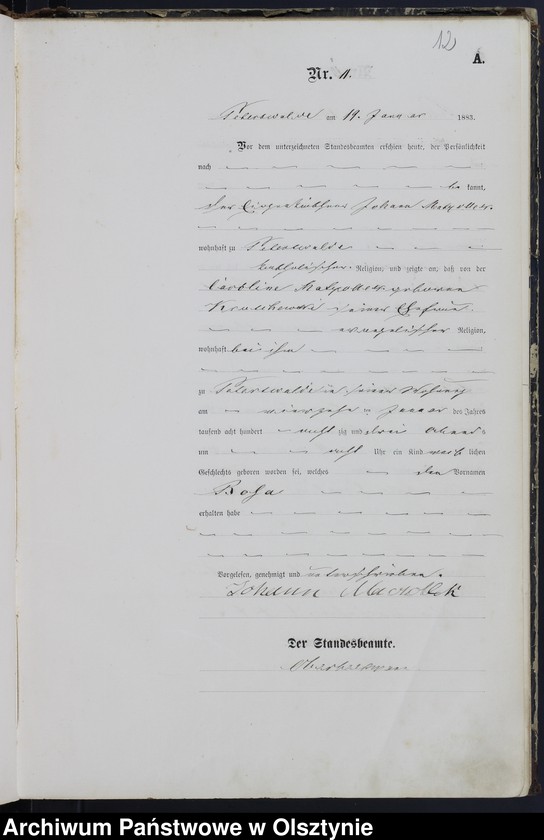 12
A.
Nr. 11.
Peterswalde am 19. Januar 1883.
Vor dem unterzeichneten Standesbeamten erschien heute, der Persönlichkeit
nach
be kannt,
der Johann
wohnhaft zu Peterswalde
katholischer Religion, und zeigte an, daß von der
Caroline geborenen
seiner Ehefrau
evangelischer Religion,
wohnhaft bei ihm
zu Peterswalde in seiner Wohnung
am vierzehn ten Januar des Jahres
tausend acht hundert acht zig und drei Abends
um acht Uhr ein Kind weib lichen
Geschlechts geboren worden sei, welches den Vornamen
Rosa
erhalten habe
Vorgelesen, genehmigt und unterschrieben.
Johann
Der Standesbeamte.
Archiwum Państwowe w Olsztynie